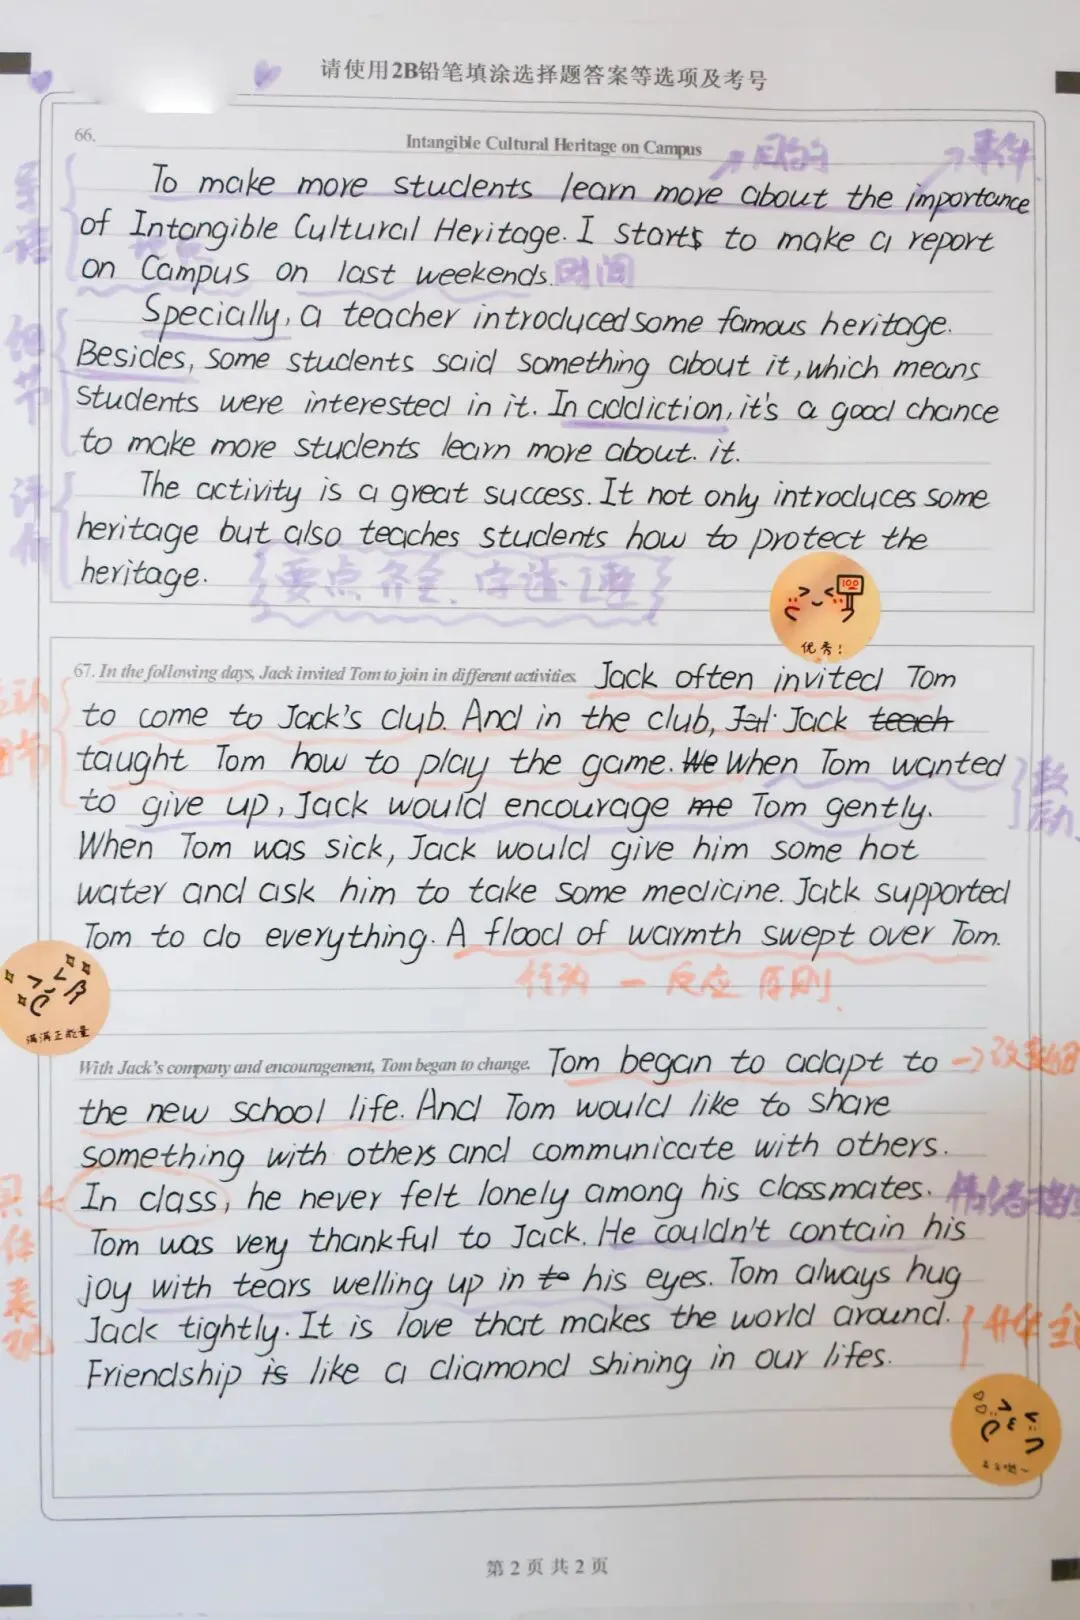 请使用2B铅笔填涂选择题答案等选项及考号
66.
Intangible Cultural Heritage on Campus
目的
事件
To make more students learn more about the importance
导语
of Intangible Cultural Heritage. I starts to make a report
on Campus on last weekends. 时间
Specially, a teacher introduced some famous heritage.
细节
Besides, some students said something about it, which means
students were interested in it. In addiction, it's a good chance
to make more students learn more about. it.
The activity is a great success. It not only introduces some
评价
heritage but also teaches students how to protect the
heritage.
要点齐全、字迹工整
100
优秀!
67. In the following days, Jack invited Tom to join in different activities. Jack often invited Tom
to come to Jack's club. And in the club, Jal Jack teach
taught Tom how to play the game. We When Tom wanted
to give up, Jack would encourage me Tom gently.
When Tom was sick, Jack would give him some hot
water and ask him to take some medicine. Jack supported
Tom to do everything. A flood of warmth swept over Tom.
行为 - 反应 原则
满满正能量
With Jack's company and encouragement, Tom began to change. Tom began to adapt to
the new school life. And Tom would like to share
something with others and communicate with others.
In class, he never felt lonely among his classmates.
具体表现
Tom was very thankful to Jack. He couldn't contain his
joy with tears welling up in to his eyes. Tom always hug
Jack tightly. It is love that makes the world around.
升华主
Friendship is like a diamond shining in our lifes.
第2页共2页